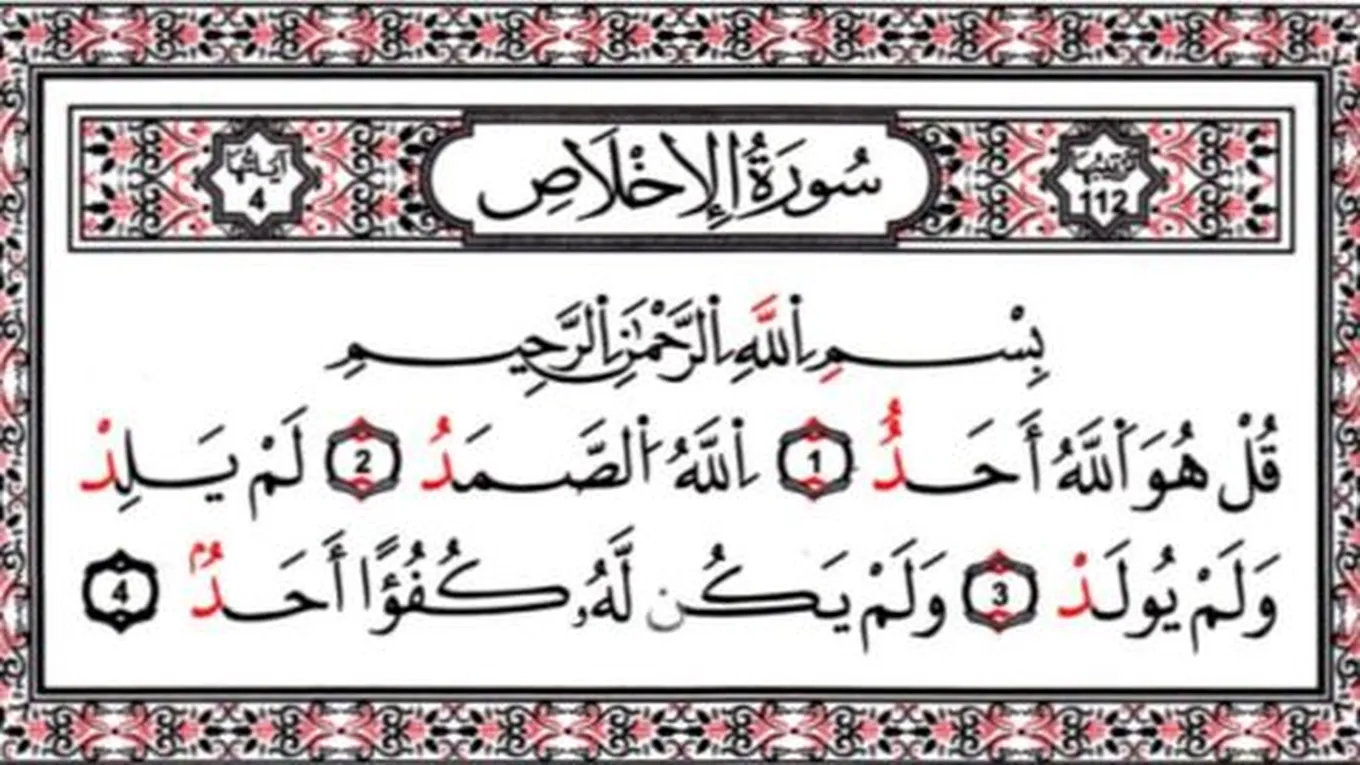 ترتيبها 112 سُورَةُ الإِخْلَاصِ آياتها 4
بِسْمِ ٱللَّهِ ٱلرَّحْمَٰنِ ٱلرَّحِيمِ
قُلْ هُوَ ٱللَّهُ أَحَدٌ 1 ٱللَّهُ ٱلصَّمَدُ 2 لَمْ يَلِدْ
وَلَمْ يُولَدْ 3 وَلَمْ يَكُن لَّهُۥ كُفُؤًا أَحَدٌۢ 4